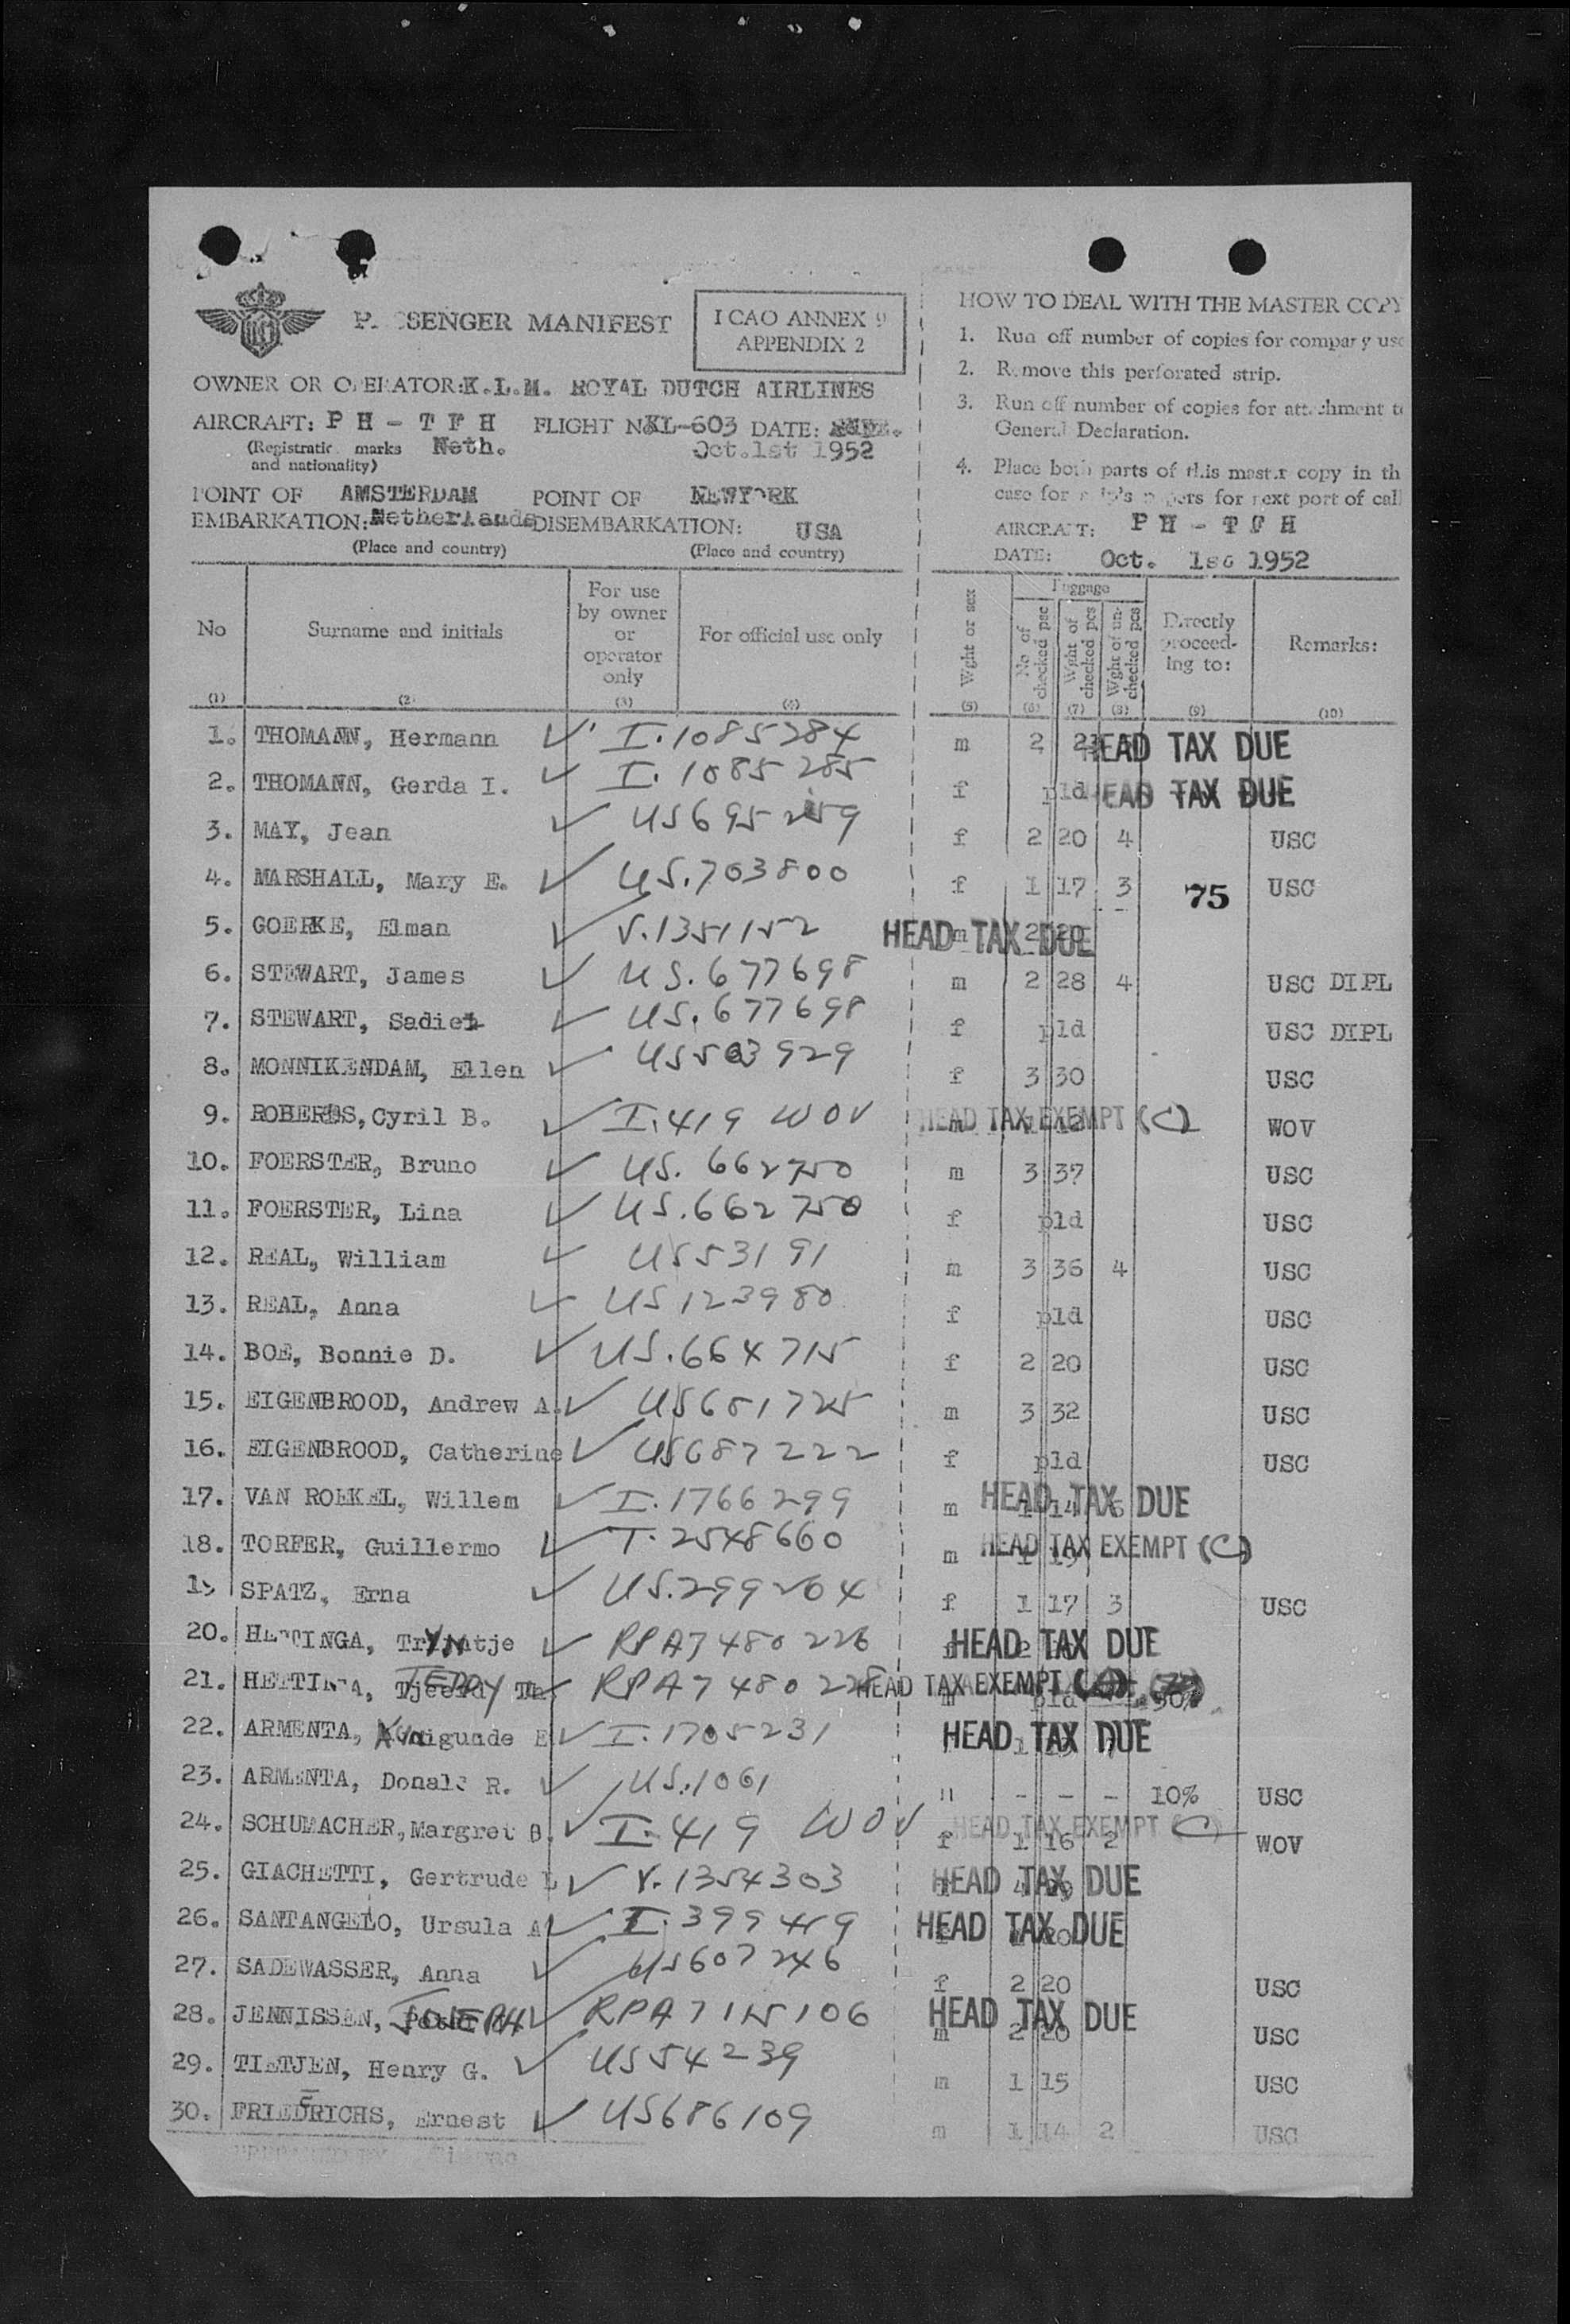 PASSENGER MANIFEST
I CAO ANNEX 9
APPENDIX 2
OWNER OR OPERATOR: K.L.M. ROYAL DUTCH AIRLINES
AIRCRAFT: P H - T F H FLIGHT No KL-603 DATE:
(Registration marks and nationality) Neth. Oct. 1st 1952
POINT OF EMBARKATION: AMSTERDAM Netherlands POINT OF DISEMBARKATION: NEWYORK USA
(Place and country) (Place and country)
HOW TO DEAL WITH THE MASTER COPY
1. Run off number of copies for company use
2. Remove this perforated strip.
3. Run off number of copies for attachment to
General Declaration.
4. Place both parts of this master copy in th
case for ship's papers for next port of call
AIRCRAFT: P H - T F H
DATE: Oct. 1st 1952
No Surname and initials For use by owner or operator only For official use only Wght or sex Luggage No of checked pec Wght of checked pcs Wght of un-checked pcs Directly proceeding to: Remarks:
(1) (2) (3) (4) (5) (6) (7) (8) (9) (10)
1. THOMANN, Hermann ✓ I.1085284 m 2 HEAD TAX DUE
2. THOMANN, Gerda I. ✓ I.1085285 f pld HEAD TAX DUE
3. MAY, Jean ✓ US695259 f 2 20 4 USC
4. MARSHALL, Mary E. ✓ US.703800 f 1 17 3 75 USC
5. GOERKE, Elman ✓ V.1351152 m HEAD TAX DUE
6. STEWART, James ✓ US.677698 m 2 28 4 USC DIPL
7. STEWART, Sadie ✓ US.677698 f pld USC DIPL
8. MONNIKENDAM, Ellen ✓ US503929 f 3 30 USC
9. ROBERTS, Cyril B. ✓ I.419 WOV m HEAD TAX EXEMPT (C) WOV
10. FOERSTER, Bruno ✓ US.662750 m 3 37 USC
11. FOERSTER, Lina ✓ US.662750 f pld USC
12. REAL, William ✓ US53191 m 3 36 4 USC
13. REAL, Anna ✓ US123980 f pld USC
14. BOE, Bonnie D. ✓ US.664715 f 2 20 USC
15. EIGENBROOD, Andrew A. ✓ US681725 m 3 32 USC
16. EIGENBROOD, Catherine ✓ US687222 f pld USC
17. VAN ROEKEL, Willem ✓ I.1766299 m 1 14 HEAD TAX DUE
18. TORFER, Guillermo ✓ T.2548660 m HEAD TAX EXEMPT (C)
19 SPATZ, Erna ✓ US.299204 f 1 17 3 USC
20. HETTINGA, Tryntje ✓ RPA7480226 HEAD TAX DUE
21. HETTINGA, Tjeerd TEDDY ✓ RPA7480228 HEAD TAX EXEMPT pld
22. ARMENTA, Kunigunde E ✓ I.1705231 1 HEAD TAX DUE
23. ARMENTA, Donald R. ✓ US.1061 " - - - 10% USC
24. SCHUMACHER, Margret B. ✓ I.419 WOV f 1 16 2 HEAD TAX EXEMPT (C) WOV
25. GIACHETTI, Gertrude L ✓ V.1354303 HEAD TAX DUE
26. SANTANGELO, Ursula A ✓ I.399419 f HEAD TAX DUE
27. SADEWASSER, Anna ✓ US607246 f 2 20 USC
28. JENNISSEN, JOSEPH ✓ RPA7115106 m 2 20 HEAD TAX DUE USC
29. TIETJEN, Henry G. ✓ US54239 m 1 15 USC
30. FRIEDRICHS, Ernest ✓ US686109 m 1 14 2 USC